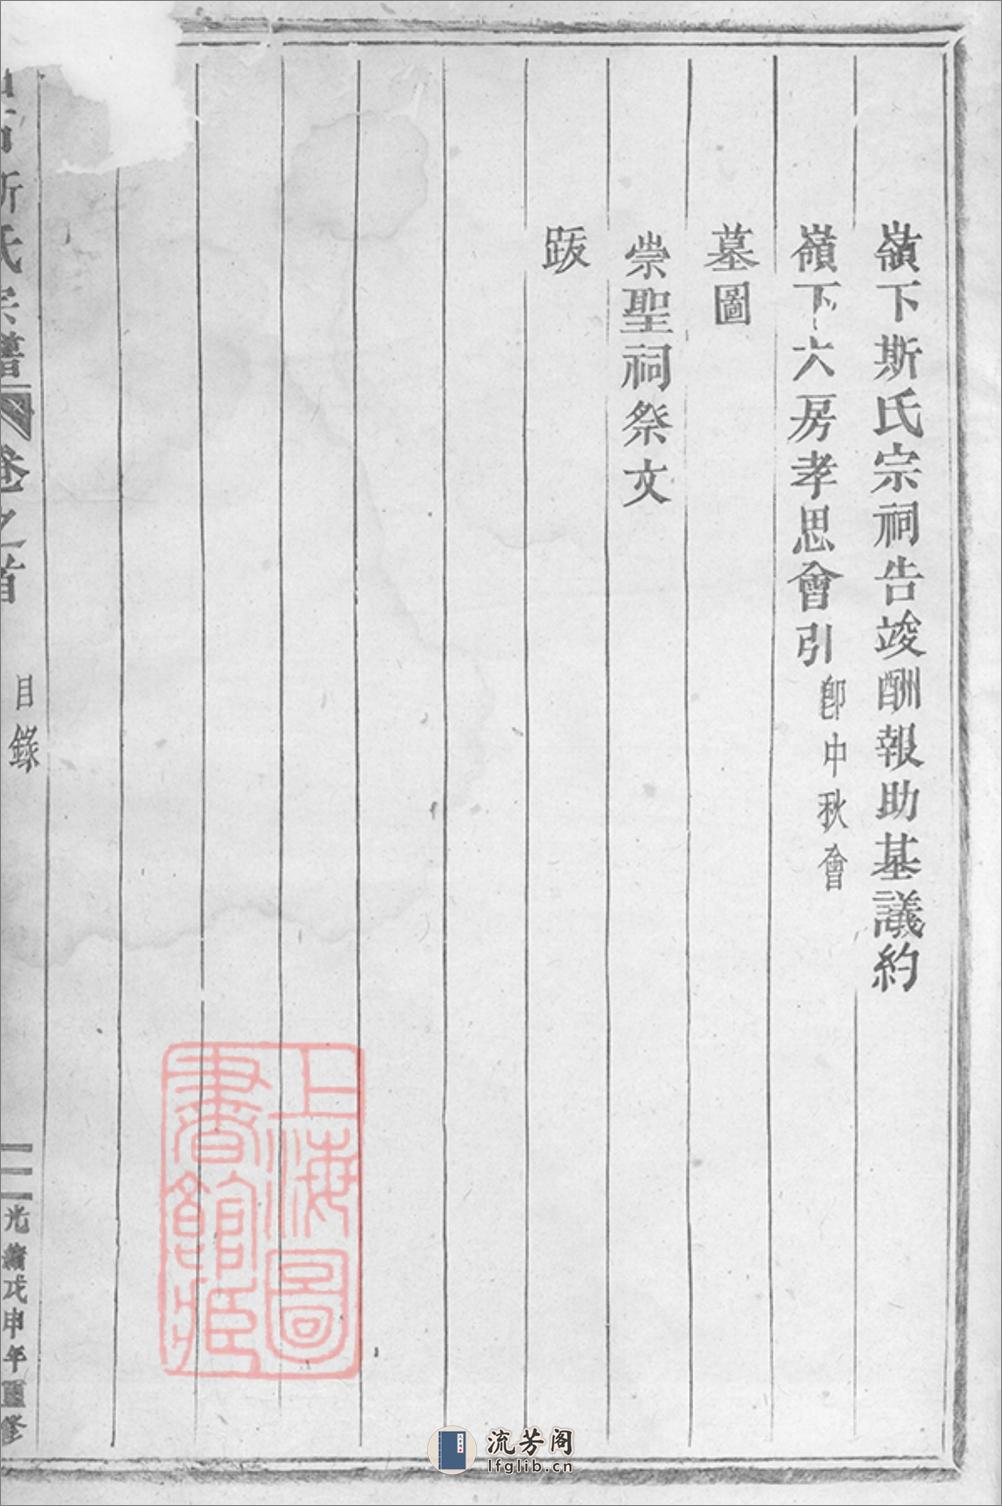 嶺下斯氏宗祠告竣酬報助基議約
嶺下六房孝思會引 卽中秋會
墓圖
崇聖祠祭文
跋
斯氏宗譜 卷之首 目錄 光緒戊申年重修
上海圖
書館藏
流芳阁
lfglib.cn